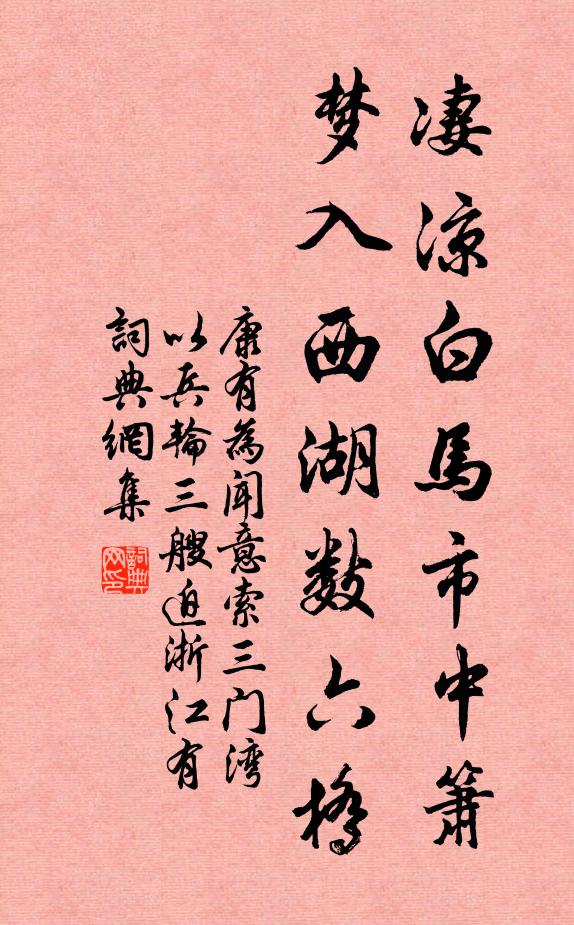 凄涼白馬市中簫
梦入西湖数六橋
康有為闻意索三门湾
以兵輪三艘迫浙江有
詞典網集
詞典网印